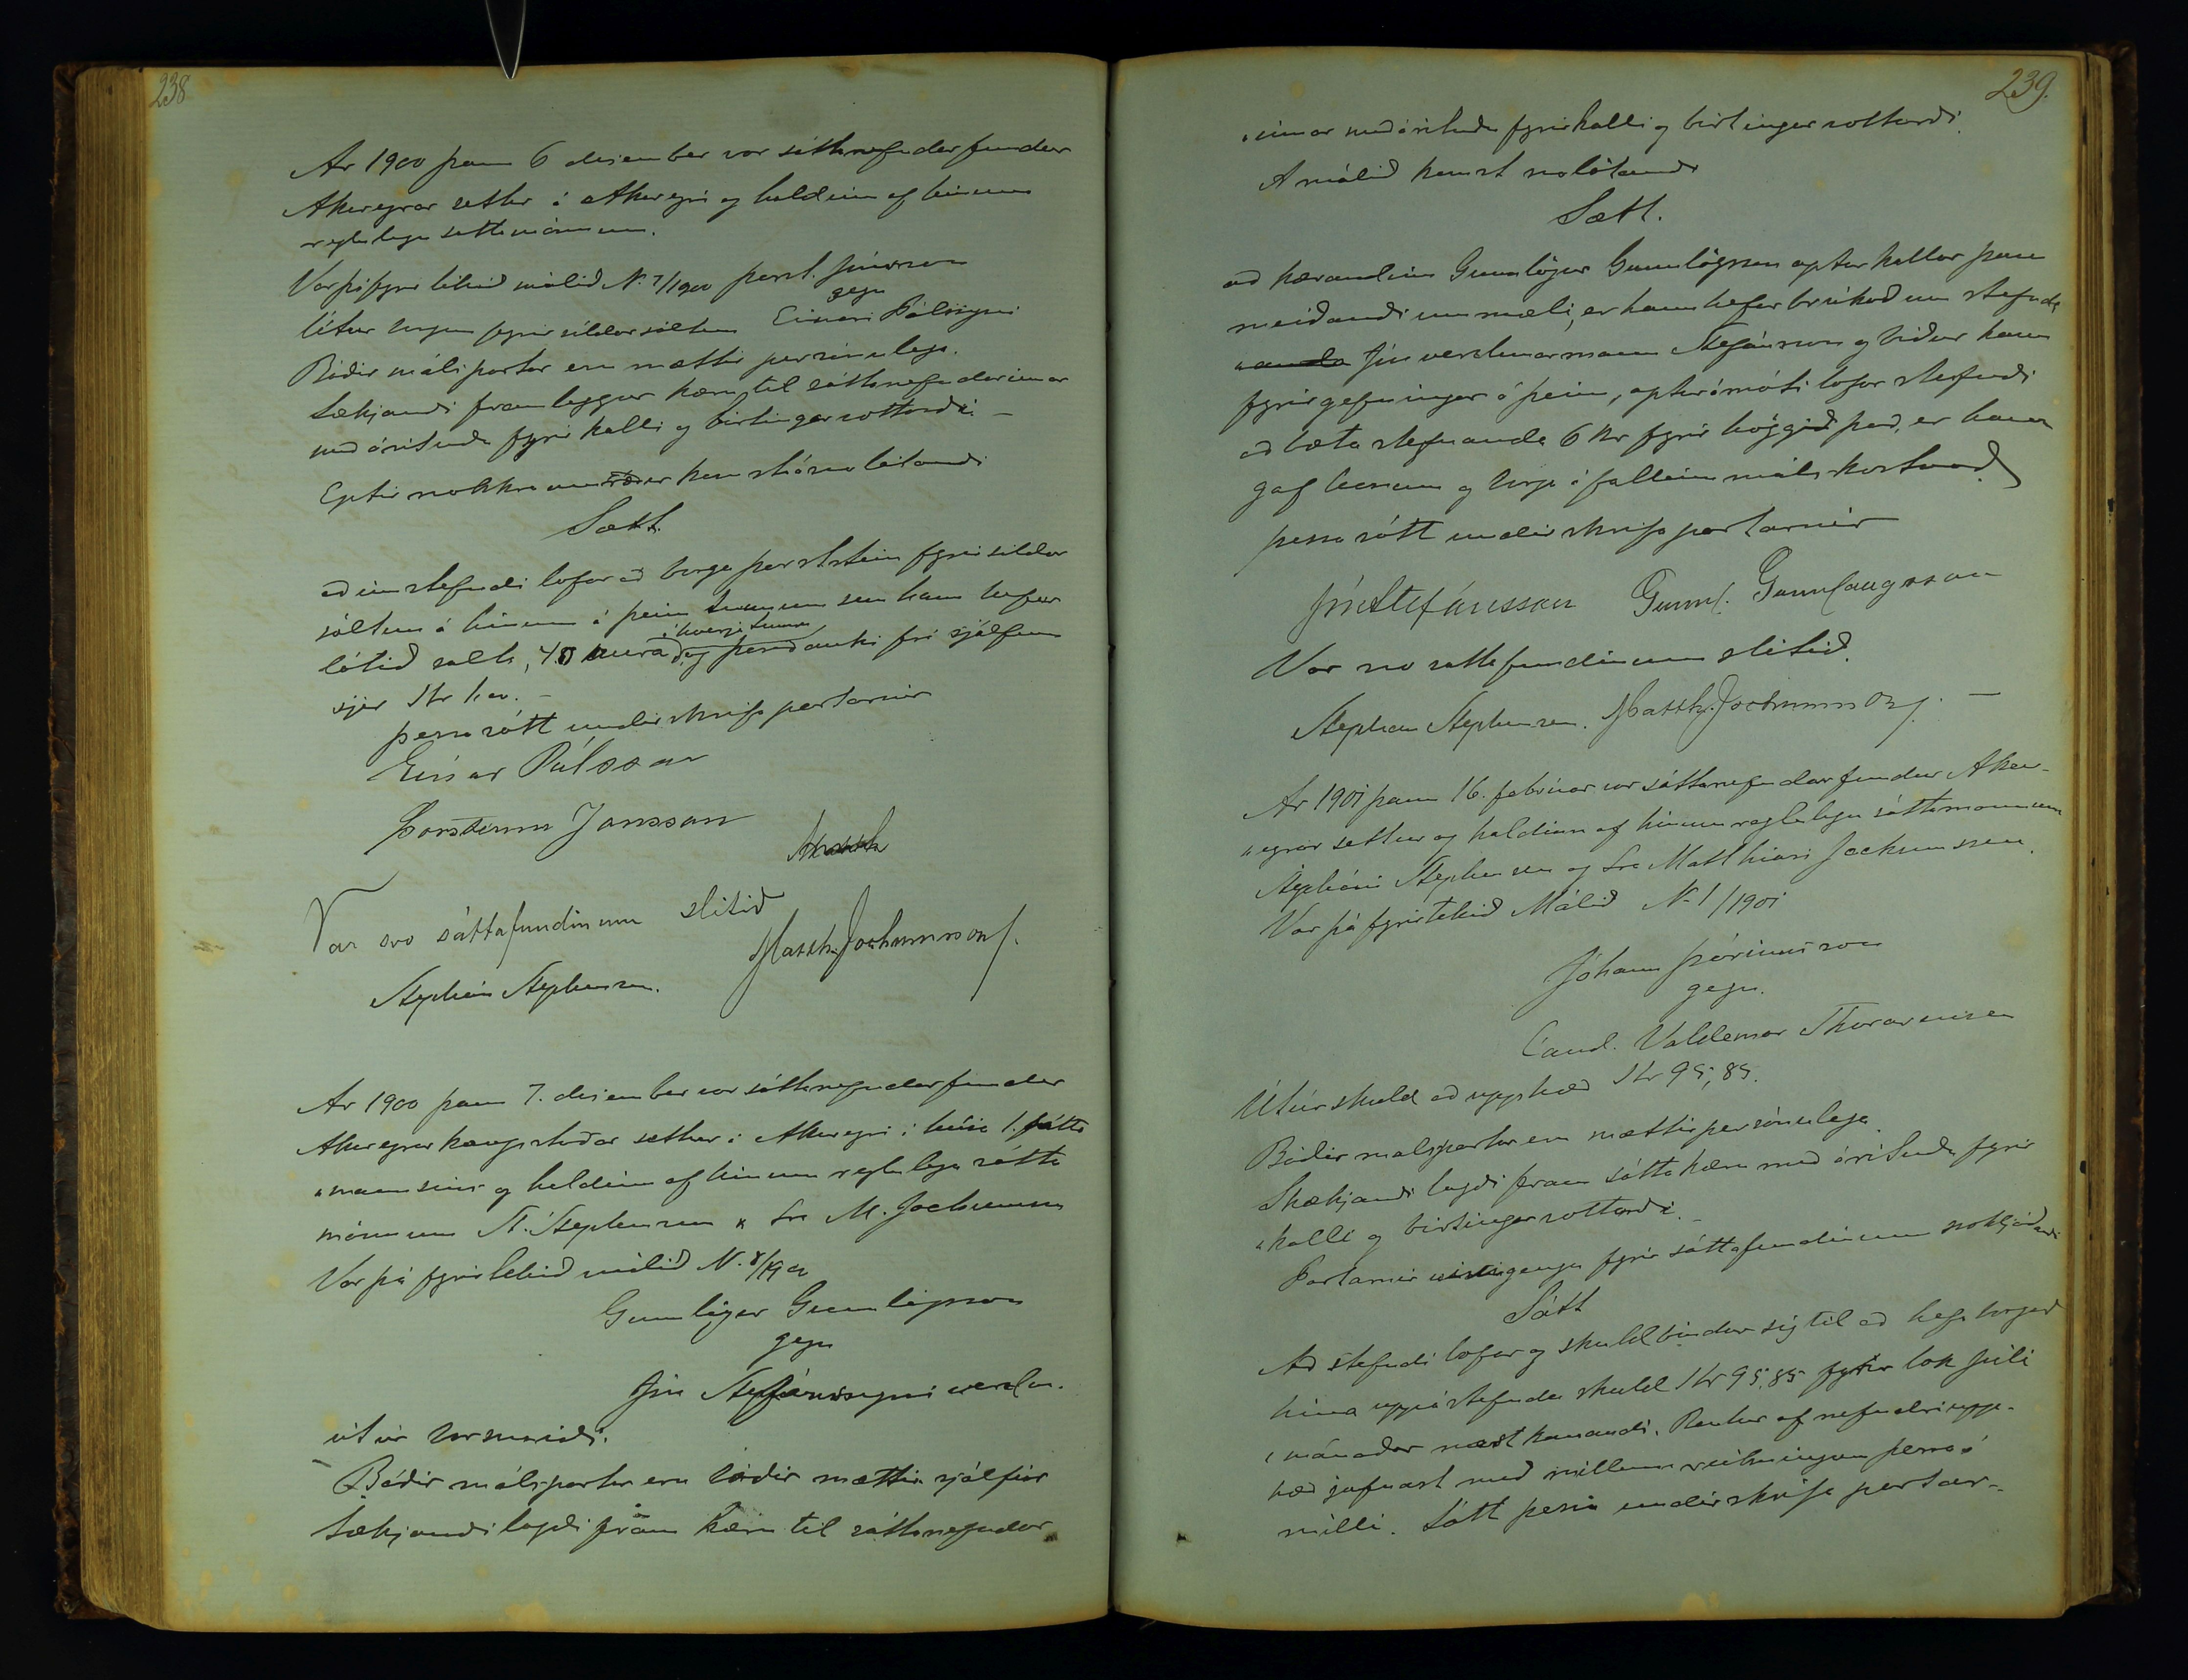 238
Ar 1900 þann 6 desember var sáttanefndarfundur
Akureyrar settur á Akureyri og haldinn af hinum
reglulegu sáttamönnum.
Var þá fyrir tekið málið N. 7/1900 Þorst. Jónsson
gegn
útur borgun fyrir síldarsöltun Einari Pálssyni
Báðir málspartar eru mættir persónulega.
Sækjandi framleggur kæru til sáttanefndarinnar
með árituðu fyrirkalli og birtingarvottorði. –
Eptir nokkrar umræður komst á svolátandi
Sætt.
að inn stefndi lofar að borga Þorsteini fyrir síldar
söltun á hinum á þeim tunnum sem hann hefur
í hverja tunnu
látið salt, 40 aura og þar að auki frá sjálfum
sjer 1 kr h
þessa sátt undirskrifa partarnir
Einar Pálsson
Þorsteinn Jonsson
Matth
Var svo sáttafundinum slitið
Stephán Stephensen. Matth. Jochumsson.
Ar 1900 þann 7. desember var sáttanefndarfundur
Akureyrarkaupstaðar settur á Akureyri í húsi 1. sátta
"mannsins og haldinn af hinum reglulegu sátta
mönnum St. Stephensen & Sra M. Jochumssen
Var þá fyrirtekið málið N. 8/1900
Gunnlögur Gunnlögsson
gegn
Jón Stefánssyni verslm.
út úr
Báðir málspartar eru báðir mættir sjálfir
Sækjandi lagði fram kæru til sáttanefndar
239.
"innar með árituðu fyrirkalli og birtingarvottorði.
Á málið komst svolátandi
Sætt.
að kærandinn Gunnlögur Gunnlögsson apturkallar þau
meiðandi ummæli, er hann hefur brúkað um stefnda
"anda Jón verslunarmann Stefánsson og biður hann
fyrirgefningar á þeim, aptur á móti lofar stefndi
að bæta stefnanda 6 kr fyrir höggið það, er hann
gaf honum og borga áfallinn málskostnað.
þessa sátt undirskrifa partarnir
Jón Stefánsson Gunnl. Gunnlaugsson
Var svo sáttafundinum slitið.
Stephan Stephensen. Matth. Jochumsson. –
Ar 1901 þann 16. febrúar var sáttanefndarfundur Akur-
"eyrar settur og haldinn af hinum reglulegu sáttamönnum
Stepháni Stephensen og Sra Matthiasi Jochumssen.
Var þá fyrirtekið Málið N. 1/1901
Jóhann Þórinnsson
gegn.
Cand. Valdemar Thorarensen
Útúr skuld að upphæð Kr 95,85.
Báðir malspartar eru mættir persónulega.
Sækjandi lagði fram sáttakæru með árituðu fyrir
"kalli og birtingarvottorði. –
Partarnir gengu fyrir sáttafundinum svohljóðandi
Sátt
Að stefndi lofar og skuldbindur sig til að hafa borgað
hina uppástefndu skuld Kr 95,85 fyrir lok júli
mánaðar næst komandi. Rentur af nefndri upp-
hæð jafnast með millumreikningum þessa á
milli. Sátt þessa undirskrifa partar-